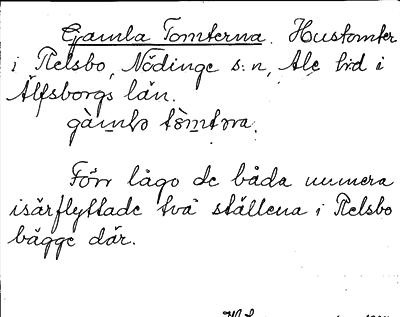 Gamla Tomterna. Hustomter
i Relsbo, Nödinge s:n, Ale hd i
Älfsborgs län.
gàmla tòmtəra.
Förr lågo de båda numera
isärflyttade två ställena i Relsbo
bägge där.